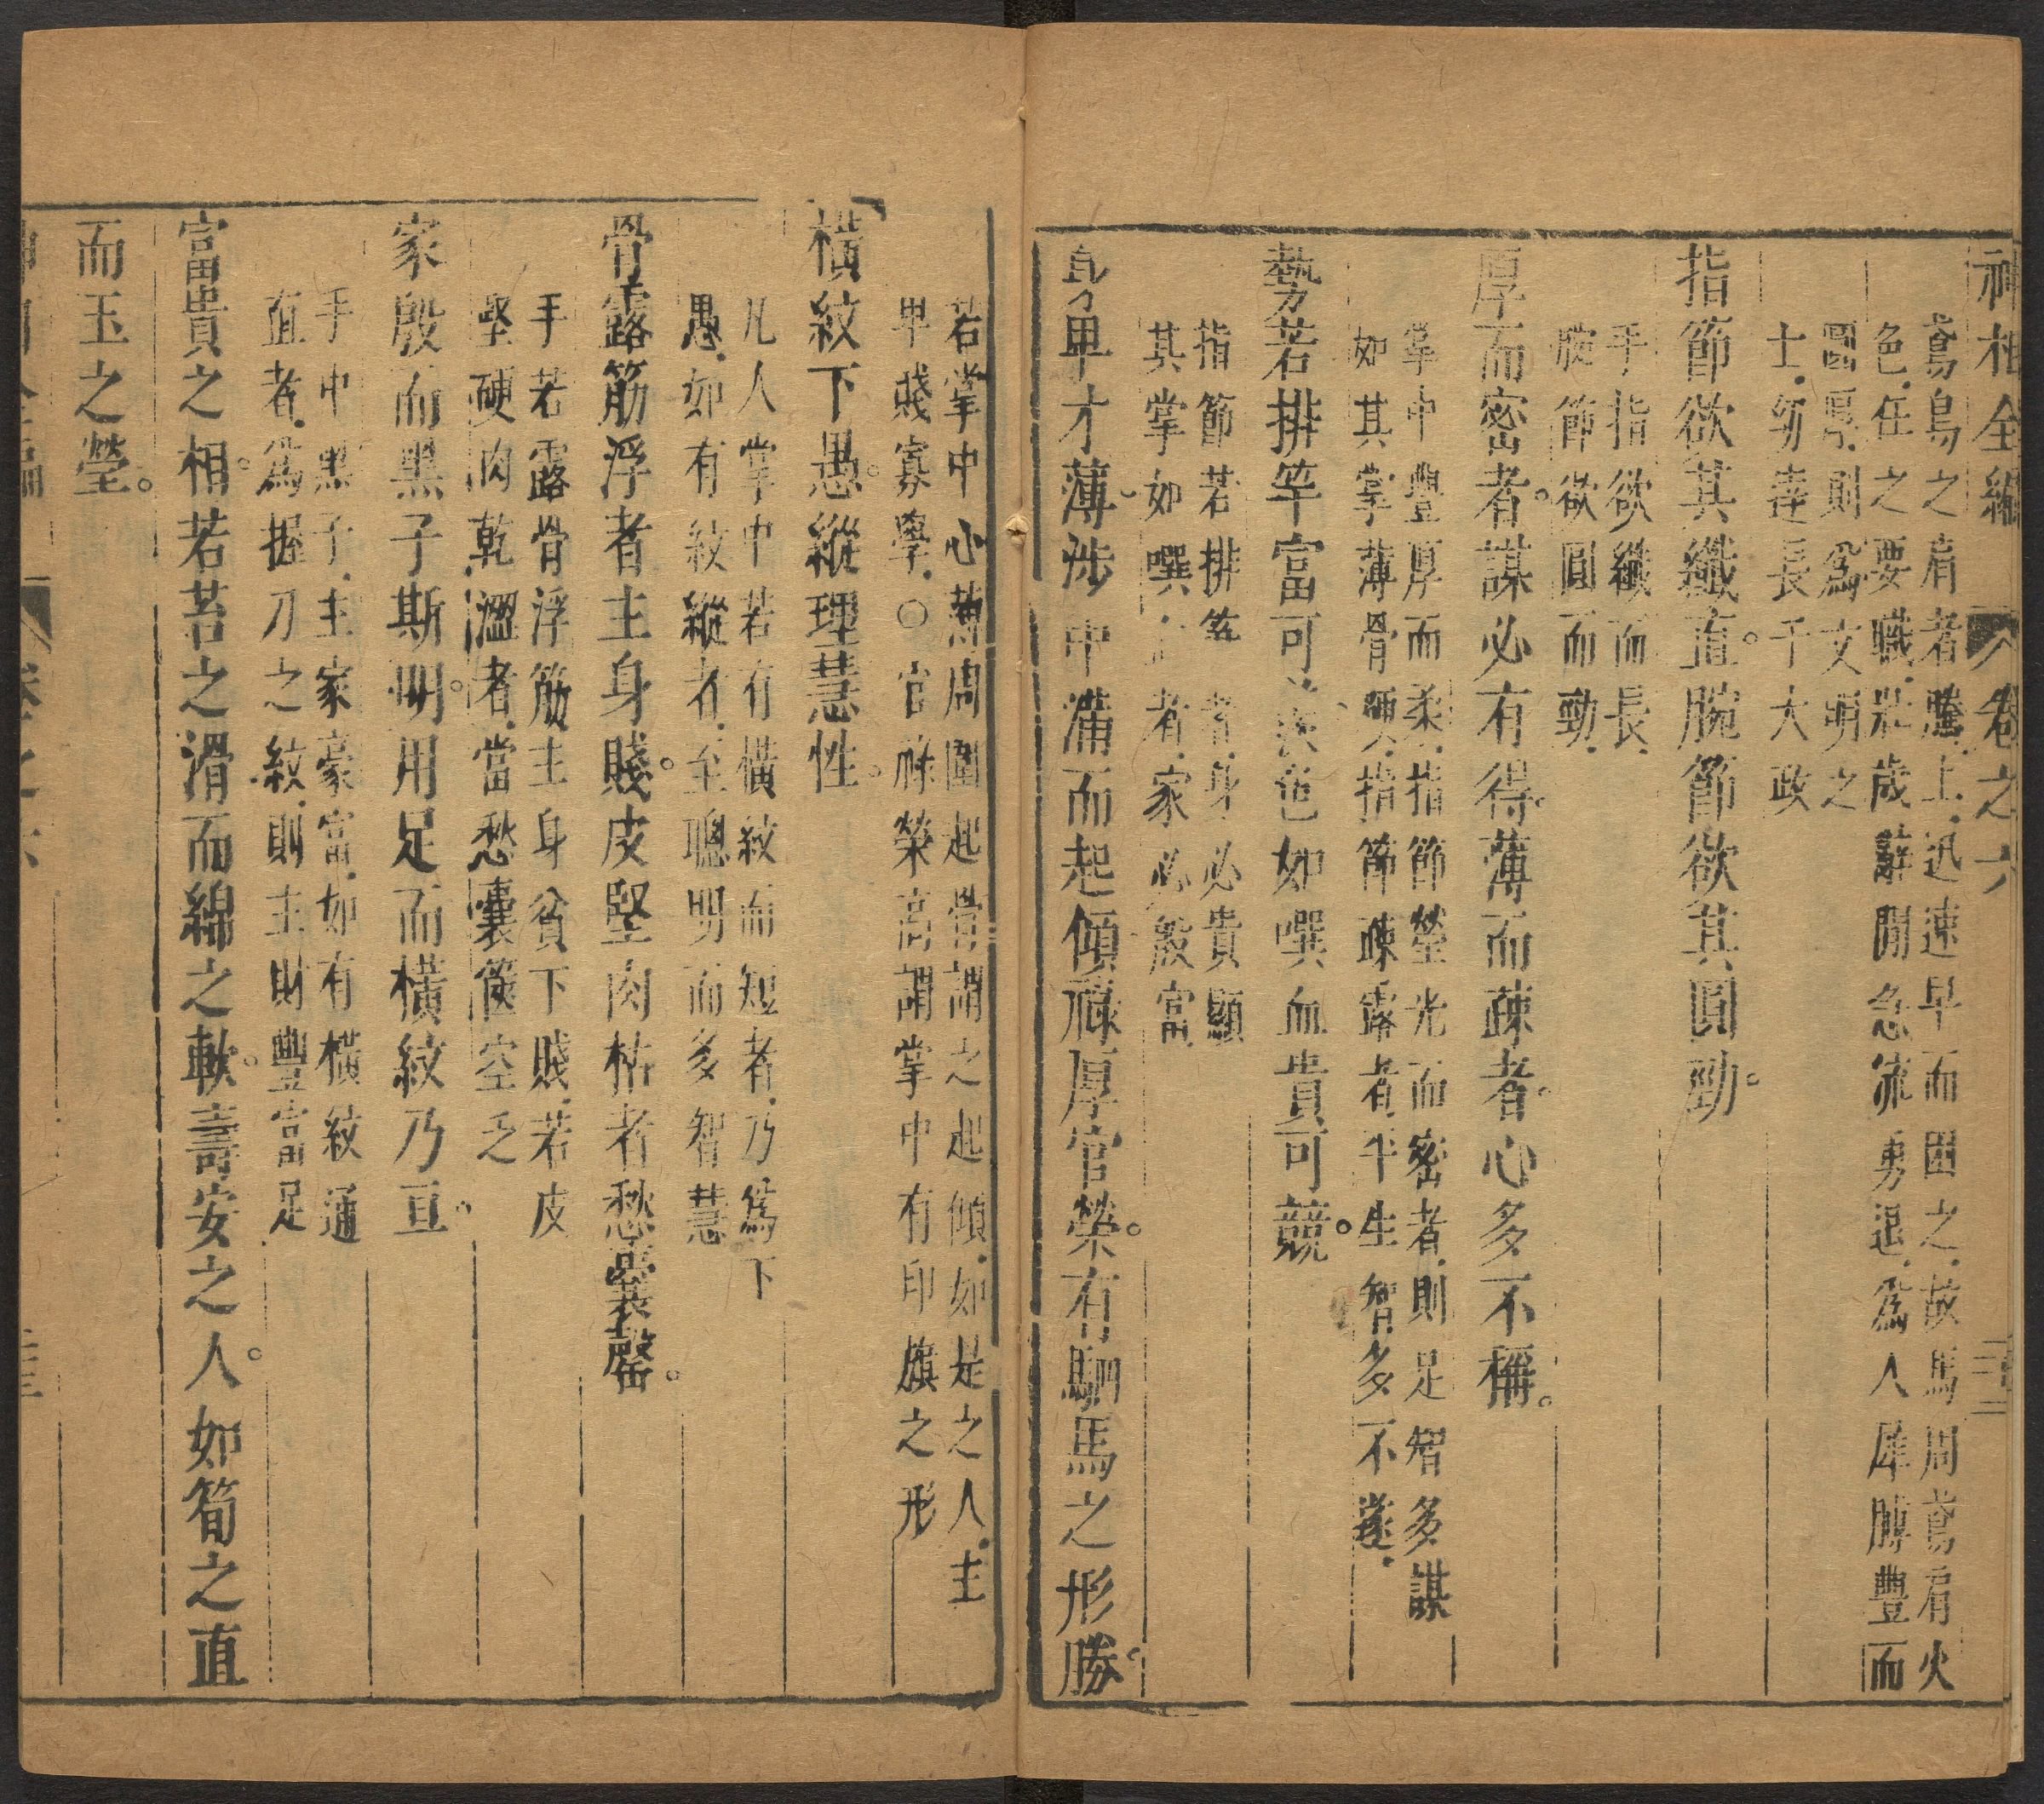 神相全編 卷之六 二十二
鳶鳥之肩者騰上迅速早而困之故馬周鳶肩火
色任之要職壯歲辭閒急流勇退為人犀膊豐而
圓厚則為文明之
士易達長于大政
指節欲其纖直腕節欲其圓勁
手指欲纖而長
腕節欲圓而勁
厚而密者謀必有得薄而疎者心多不稱
掌中豐厚而柔指節瑩光而密者則足智多謀
如其掌薄骨硬指節疎露者平生智多不遂
勢若排竿富可 色如噀血貴可競
指節若排竿者身必貴顯
其掌如噀 者家必殷富
身卑才薄涉中滿而起傾祿厚官榮有駟馬之形勝
若掌中心薄周圍起骨謂之起傾如是之人主
卑賤寡學○官祿榮高謂掌中有印旗之形
橫紋下愚縱理慧性
凡人掌中若有橫紋而短者乃為下
愚如有紋縱者至聰明而多智慧
骨露筋浮者主身賤皮堅肉枯者愁囊罄
手若露骨浮筋主身貧下賤若皮
堅硬肉乾澀者當愁囊篋空乏
家殷而黑子斯明用足而橫紋乃亘
手中黑子主家豪富如有橫紋通
直者為握刀之紋則主財豐富足
富貴之相若苔之滑而綿之軟壽安之人如筍之直
而玉之瑩